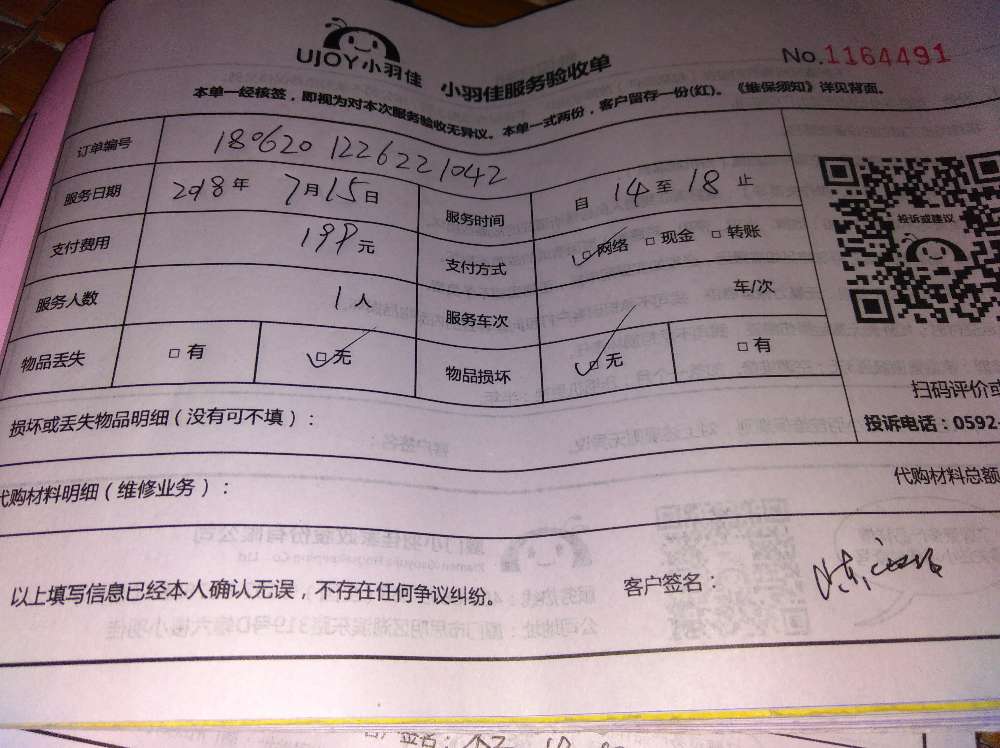 UJOY小羽佳 小羽佳服务验收单 No.1164491
本单一经核签，即视为对本次服务验收无异议。本单一式两份，客户留存一份(红)。《维保须知》详见背面。
订单编号 180620 1226221042
服务日期 2018年 7月15日 服务时间 自 14 至 18 止
支付费用 198元 支付方式 □网络 □现金 □转账
服务人数 1人 服务车次 车/次
物品丢失 □有 □无 物品损坏 □无 □有
投诉或建议
扫码评价或
损坏或丢失物品明细（没有可不填）： 投诉电话：0592-
代购材料明细（维修业务）： 代购材料总额
以上填写信息已经本人确认无误，不存在任何争议纠纷。 客户签名：